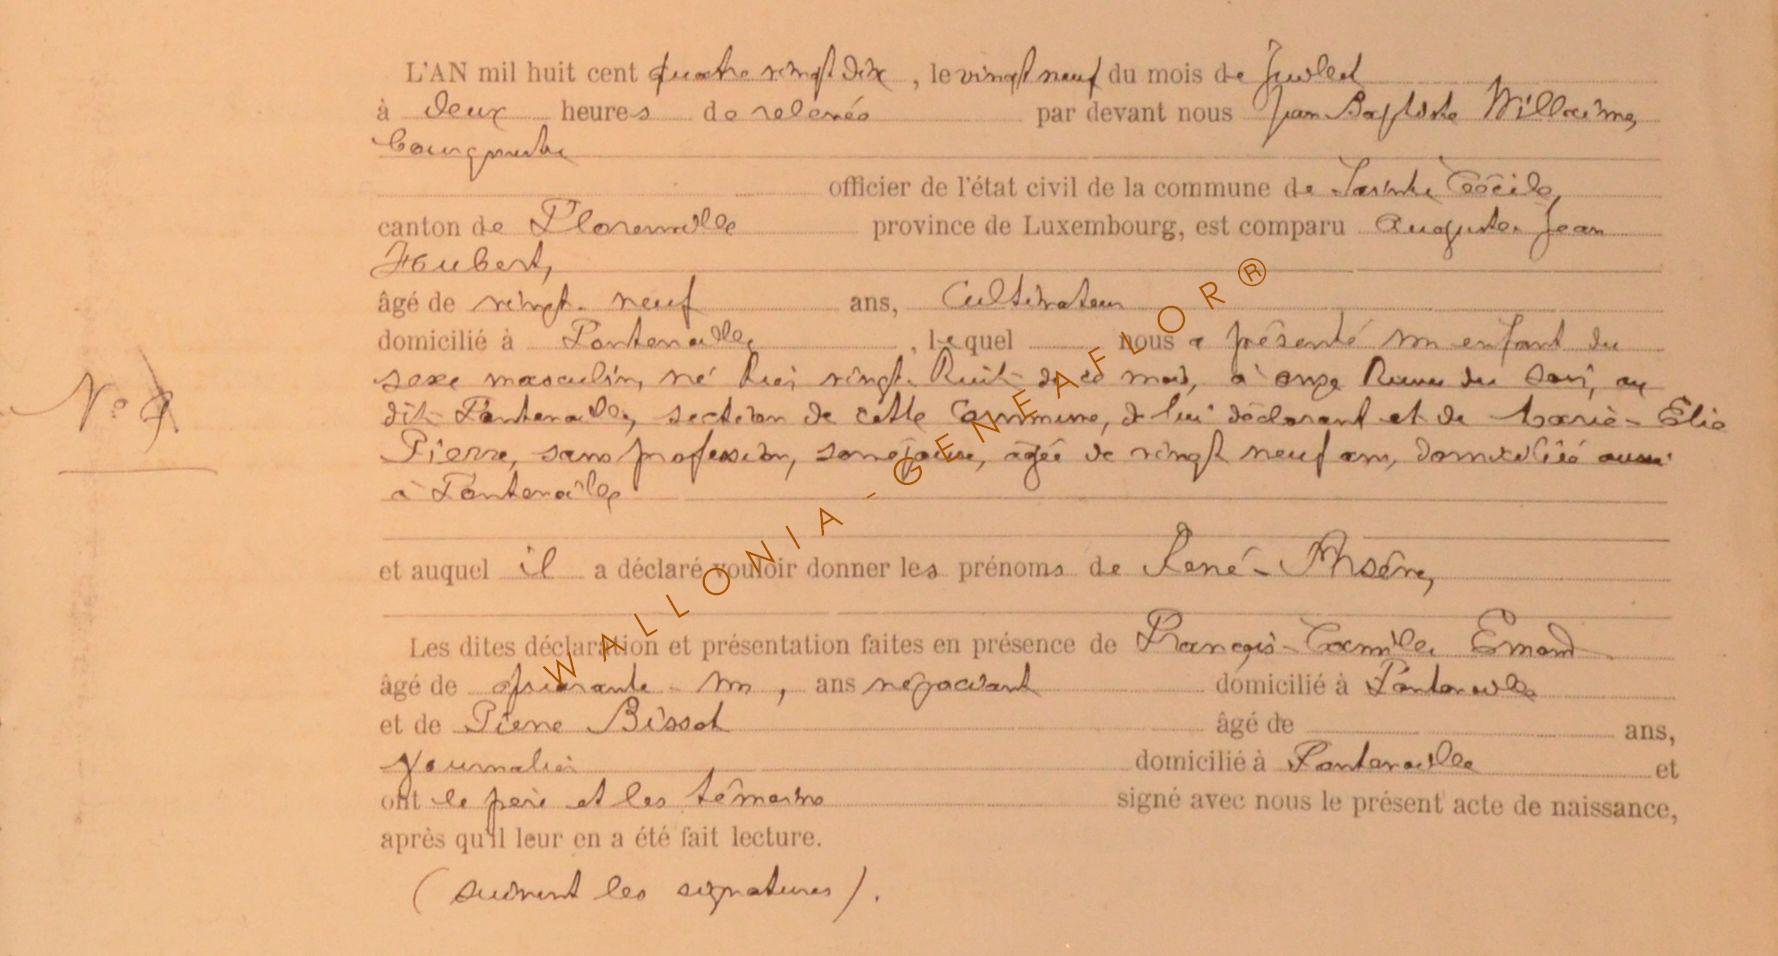 L'AN mil huit cent quatre vingt dix, le vingt neuf du mois de Juillet
à deux heures de relevée par devant nous Jean Baptiste Willaime,
Bourgmestre
officier de l'état civil de la commune de Sainte Cécile,
canton de Florenville province de Luxembourg, est comparu Auguste Jean
Houbert,
âgé de vingt neuf ans, Cultivateur
domicilié à Fontenoille, lequel nous a présenté un enfant du
sexe masculin, né hier vingt huit de ce mois, à onze heures du soir, au
dit Fontenoille, section de cette Commune, de lui déclarant et de Marie-Elie
Pierre, sans profession, son épouse, âgée de vingt neuf ans, domiciliée aussi
à Fontenoille
N° 9
et auquel il a déclaré vouloir donner les prénoms de René-Arsène,
Les dites déclaration et présentation faites en présence de François-Camille Emond
âgé de quarante un, ans négociant domicilié à Fontenoille
et de Pierre Bissot âgé de ans,
Journalier domicilié à Fontenoille et
ont le père et les témoins signé avec nous le présent acte de naissance,
après qu'il leur en a été fait lecture.
(suivent les signatures).
WALLONIA-GENEAFLOR®